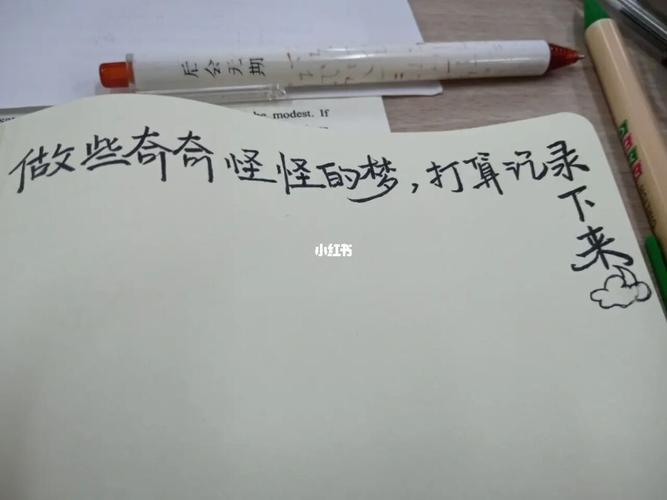 后会无期
be modest. If
做些奇奇怪怪的梦，打算记录下来
小红书